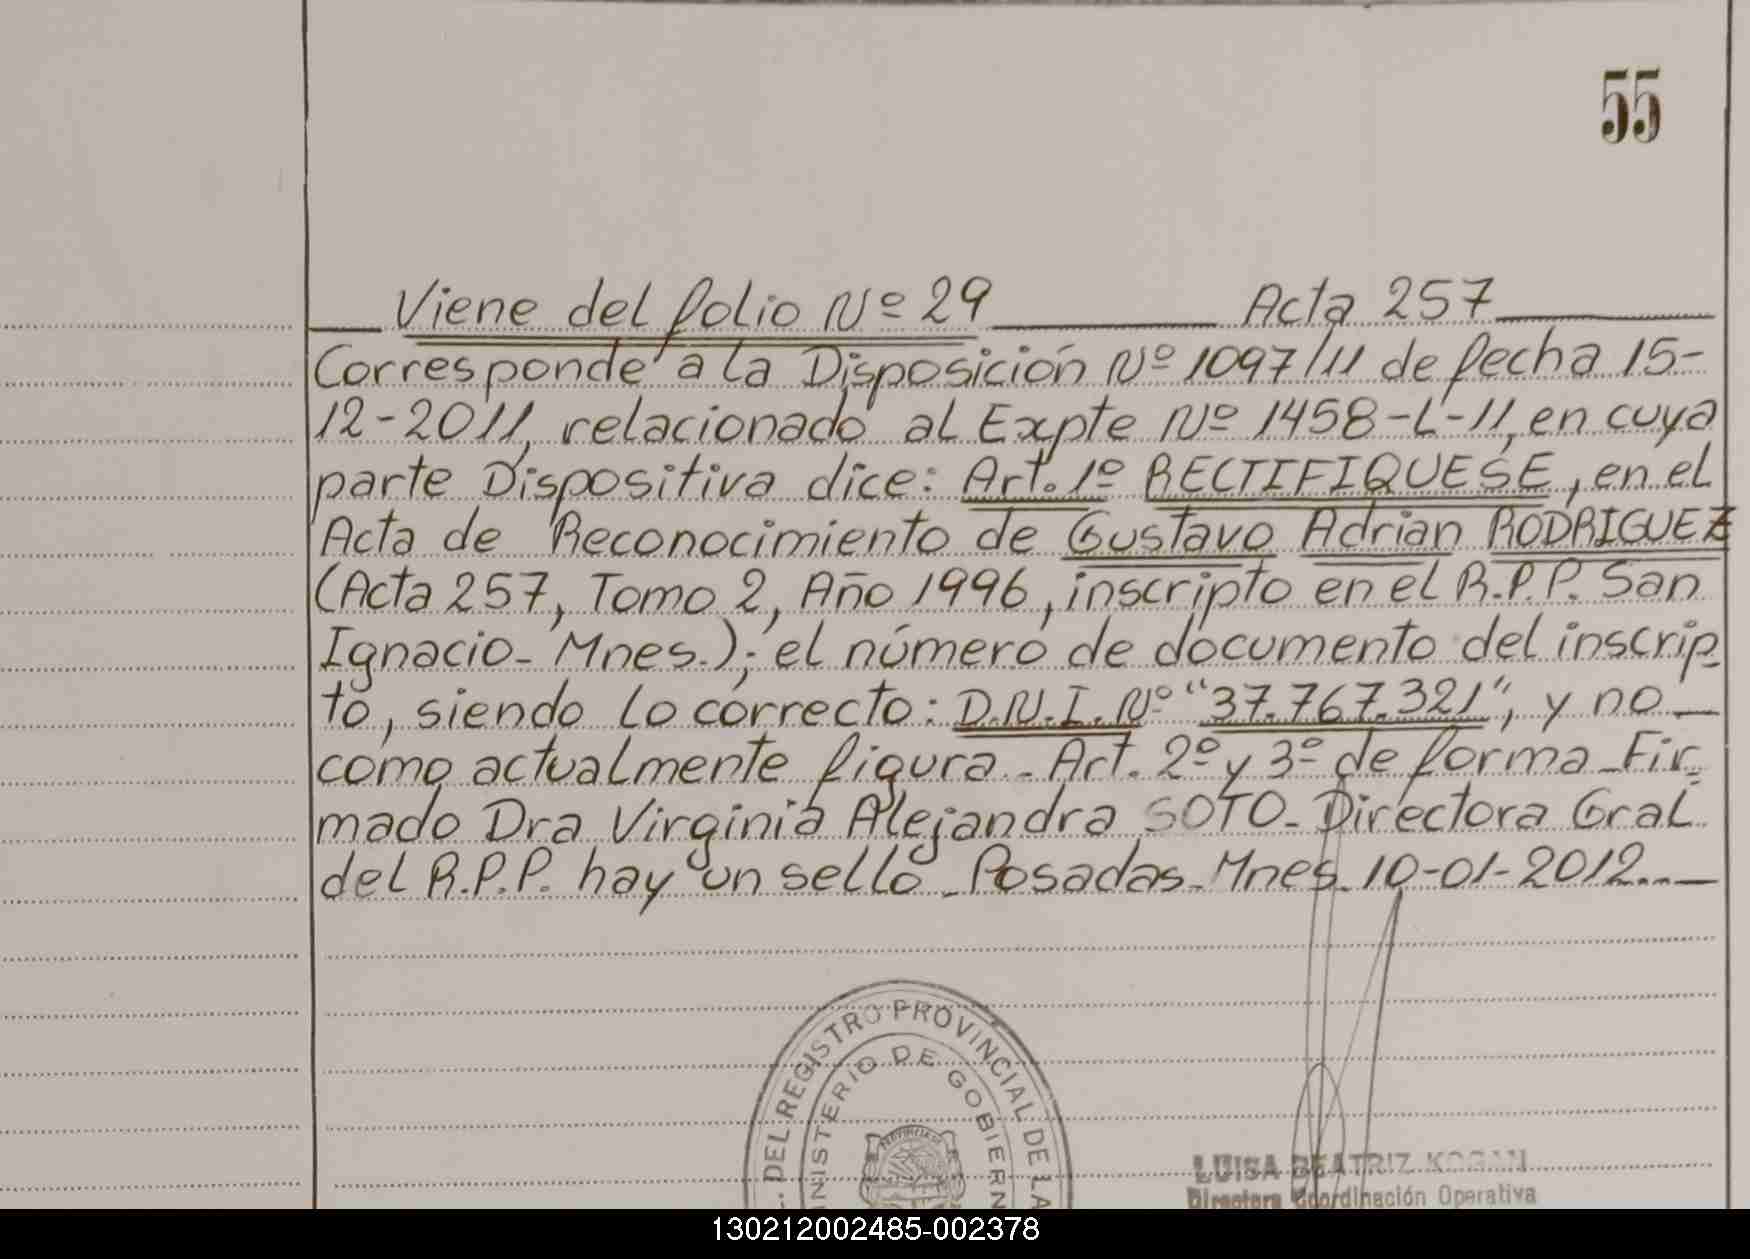 55
Viene del folio Nº 29 Acta 257
Corresponde a la Disposición Nº 1097/11 de fecha 15-
12-2011, relacionado al Expte Nº 1458-L-11, en cuya
parte Dispositiva dice: Art. 1º RECTIFIQUESE, en el
Acta de Reconocimiento de Gustavo Adrian RODRIGUEZ
(Acta 257, Tomo 2, Año 1996, inscripto en el R.P.P. San
Ignacio- Mnes.); el número de documento del inscrip-
to, siendo lo correcto: D.N.I. Nº "37.767.321", y no
como actualmente figura. Art. 2º y 3º de forma - Fir-
mado Dra Virginia Alejandra SOTO- Directora Gral
del R.P.P. hay un sello - Posadas - Mnes. 10-01-2012..
DEL REGISTRO PROVINCIAL DE LA
MINISTERIO DE GOBIERN
PROVINCIA
LUISA BEATRIZ KOGAN
Directora Coordinación Operativa
130212002485-002378